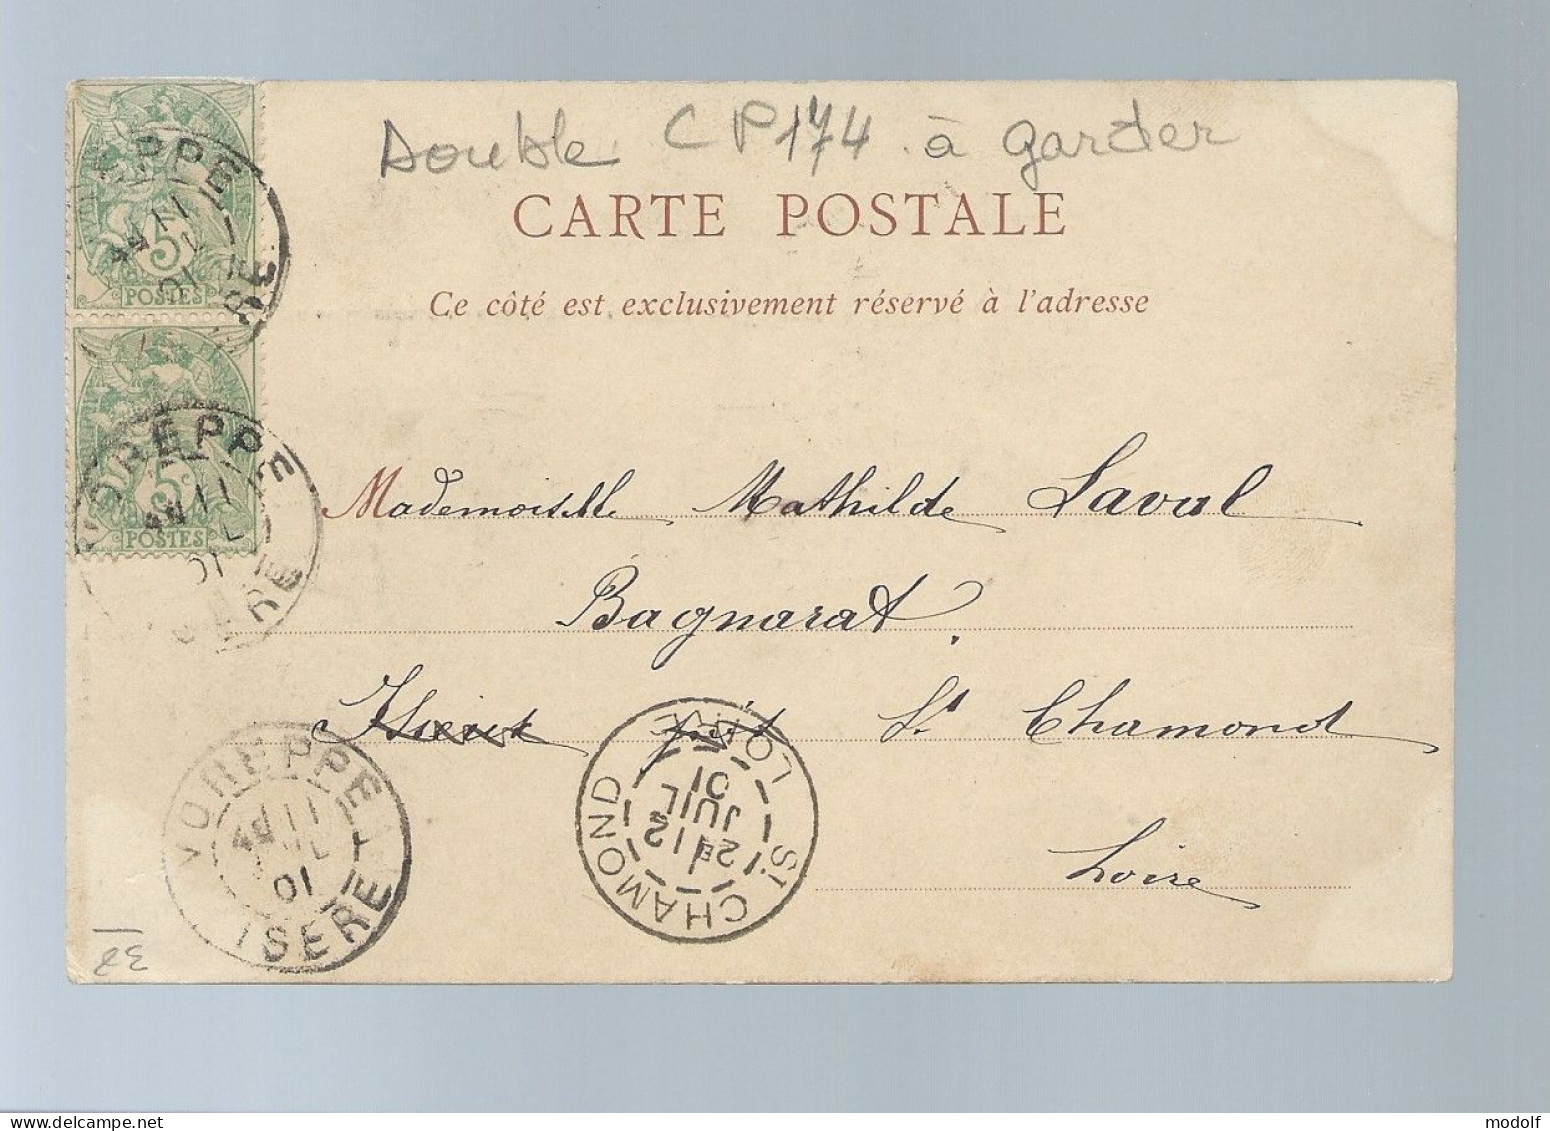 Double CP174 à garder
CARTE POSTALE
Ce côté est exclusivement réservé à l'adresse
5c
POSTES
VOREPPE
11
01
ISERE
5c
POSTES
VOREPPE
11
01
ISERE
Mademoiselle Mathilde Laval
Bagnarat
près St Chamond
Loire
VOREPPE
11
01
ISERE
ST CHAMOND
2E 12
JUIL
01
LOIRE
37
modolf